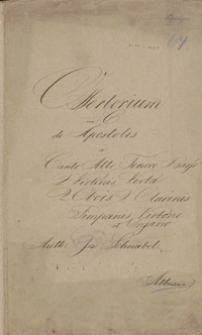 64
Offertorium
in C
de Apostolis
a
Canto Alto Tenore Basso
2 Violinis Viola
2 Obois 2 Clarinis
Timpanis Violone
et Organo
Auth: Jos: Schnabel